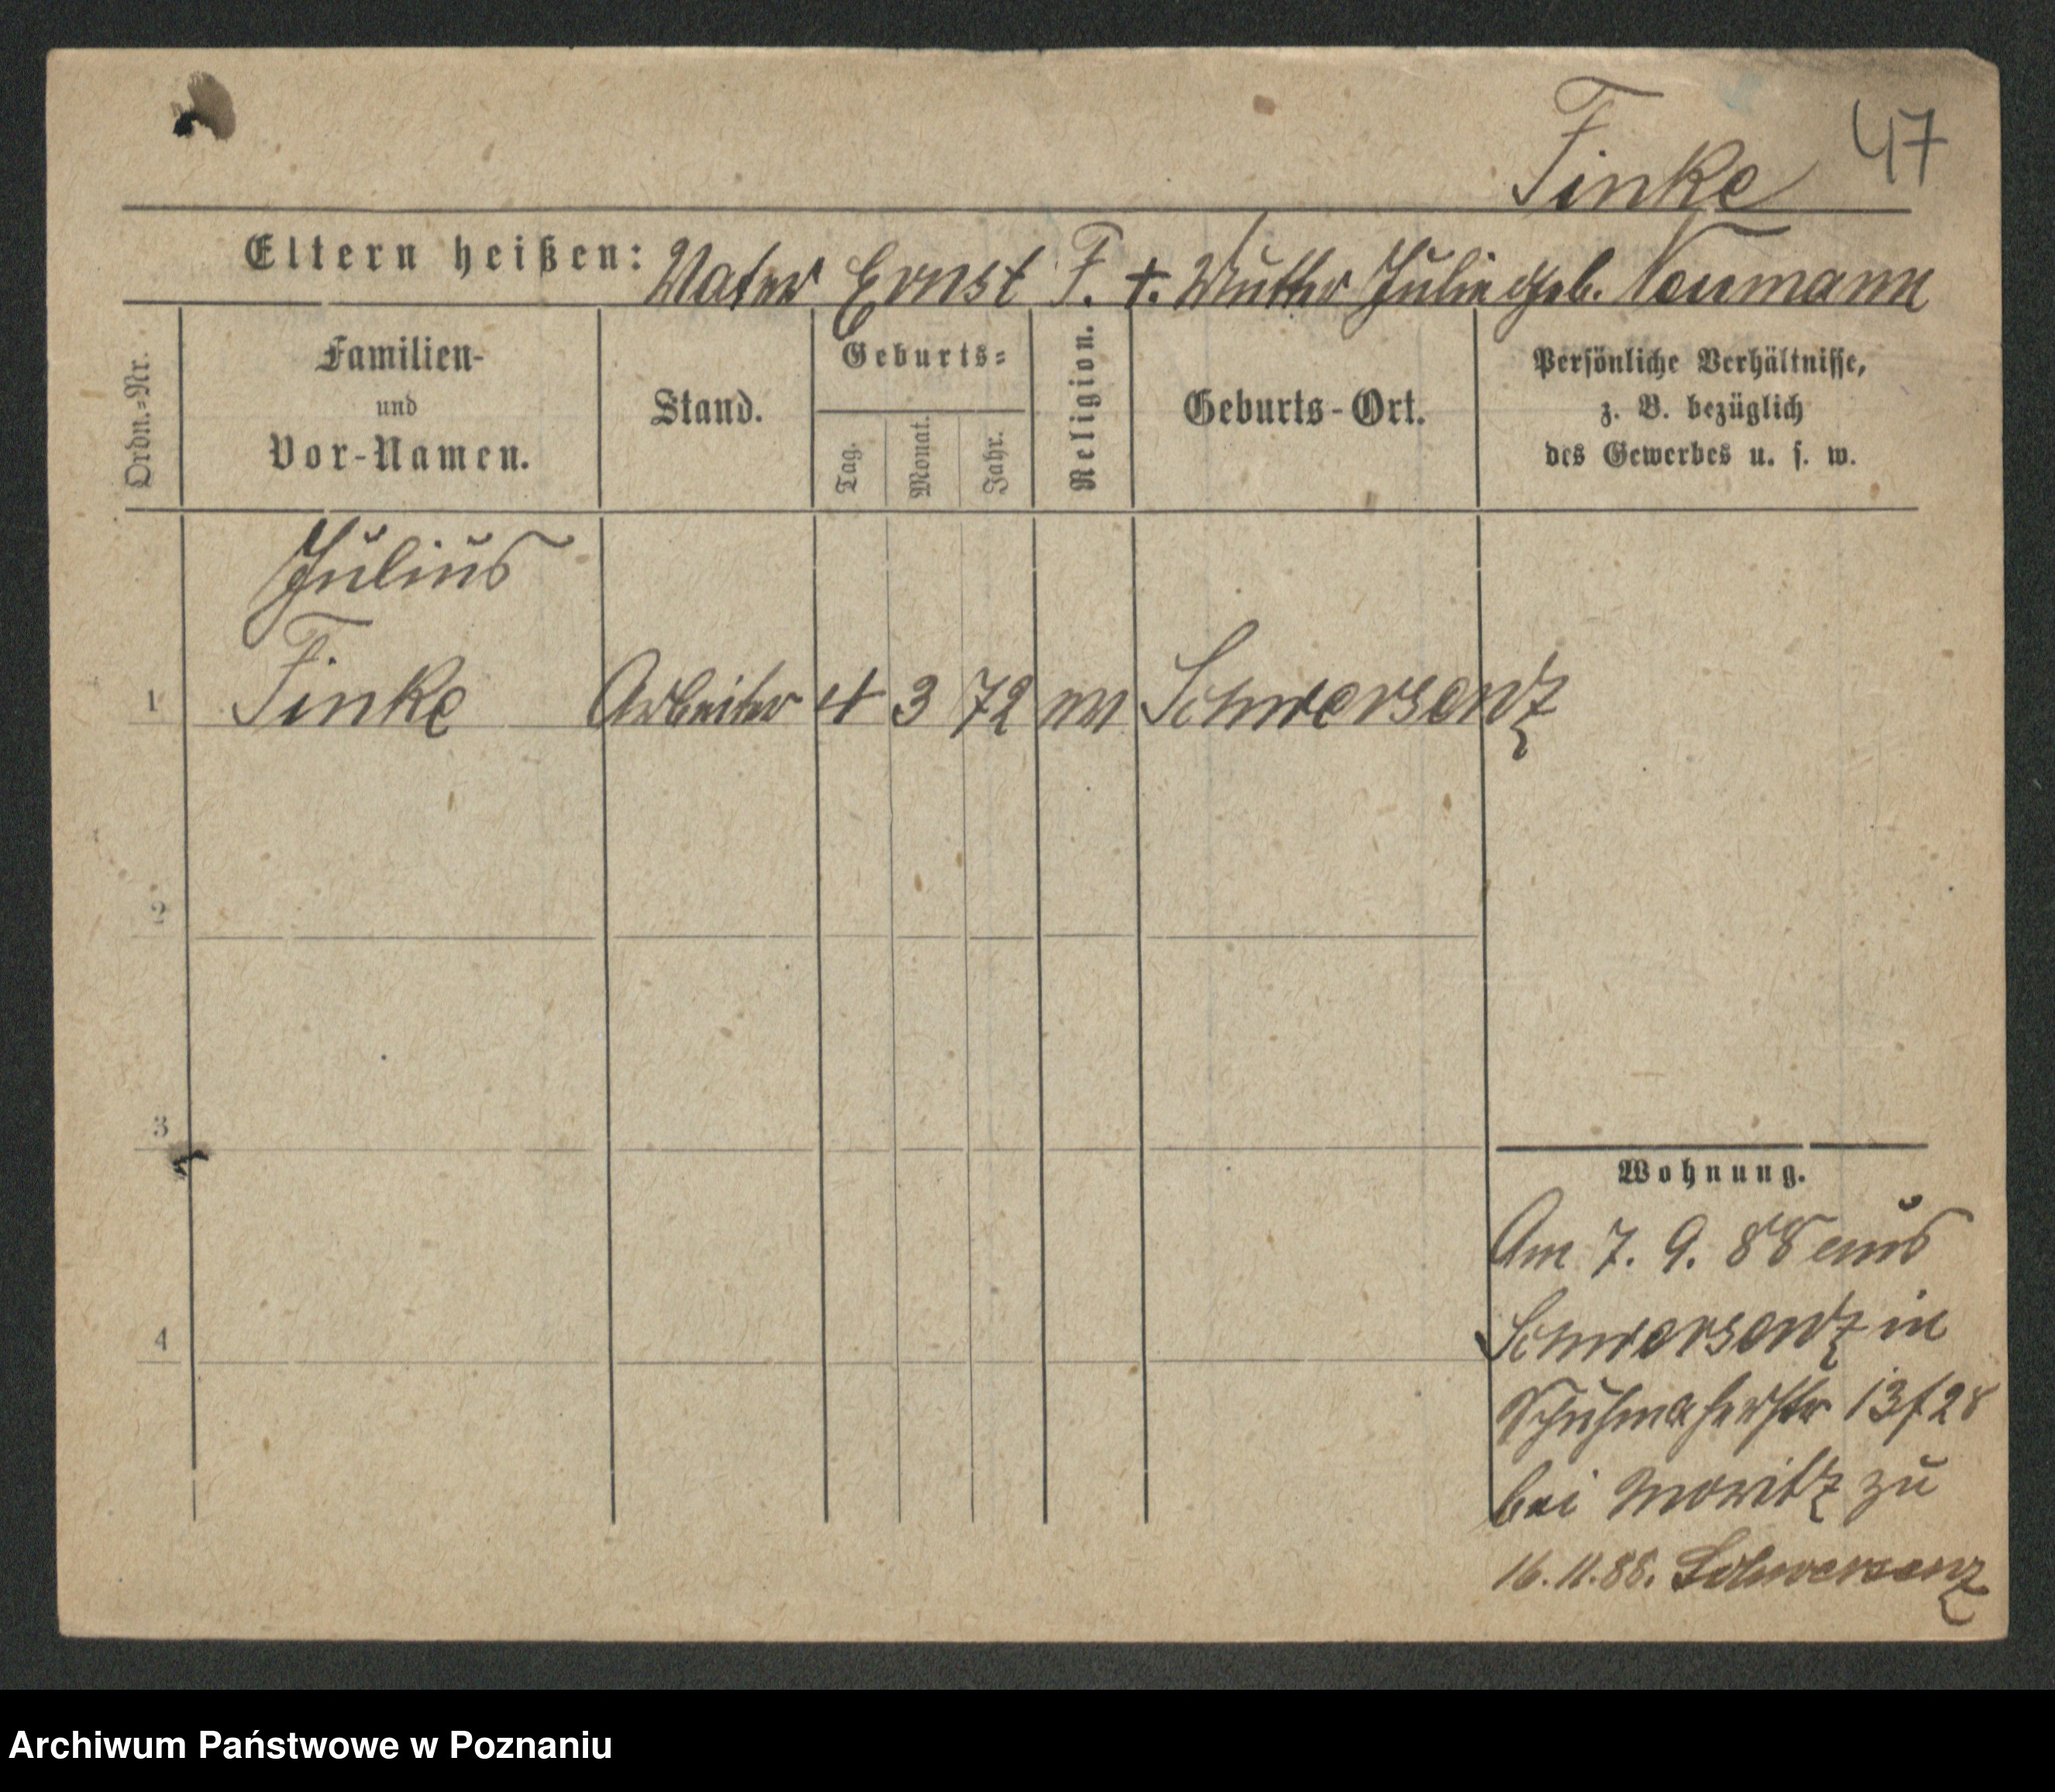 Finke 47
Eltern heißen: Vater Ernst F. †. Mutter Julie geb. Neumann
Ordn.=Nr.
Familien-
und
Vor-Namen.
Stand.
Geburts=
Tag.
Monat.
Jahr.
Religion.
Geburts-Ort.
Persönliche Verhältnisse,
z. B. bezüglich
des Gewerbes u. s. w.
Julius
1 Finke Arbeiter 4 3 72 Schwersenz
2
3
4
Wohnung.
Am 7. 9. 88 aus
Schwersenz in
Schuhmacherstr 13/28
bei Moritz zu
16.11.88. Schwersenz
Archiwum Państwowe w Poznaniu